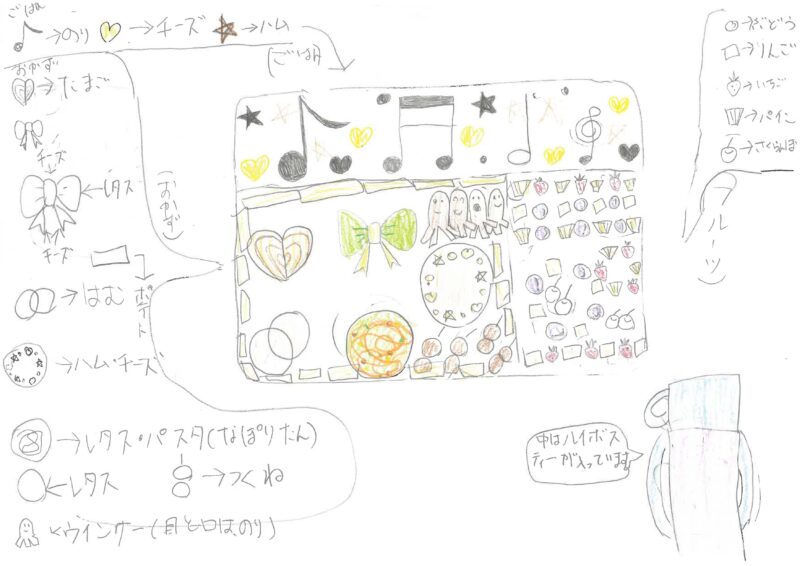 ごはん
→のり →チーズ →ハム
(ごはん)
おかず
→たまご
チーズ
←レタス
チーズ
(おかず)
→ポテト
→はむ
→ハム・チーズ
→レタス・パスタ(なぽりたん)
←レタス →つくね
←ウインナー(目と口は、のり)
→ぶどう
→りんご
→いちご
→パイン
→さくらんぼ
(フルーツ)
中はルイボス
ティーが入っています。